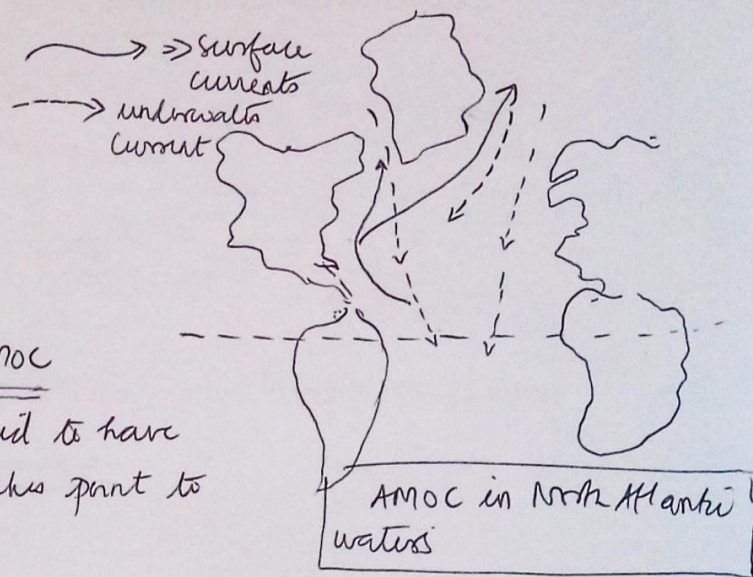 ⇒ surface
currents
underwater
current
MOC
to have
point to
AMOC in North Atlantic
waters